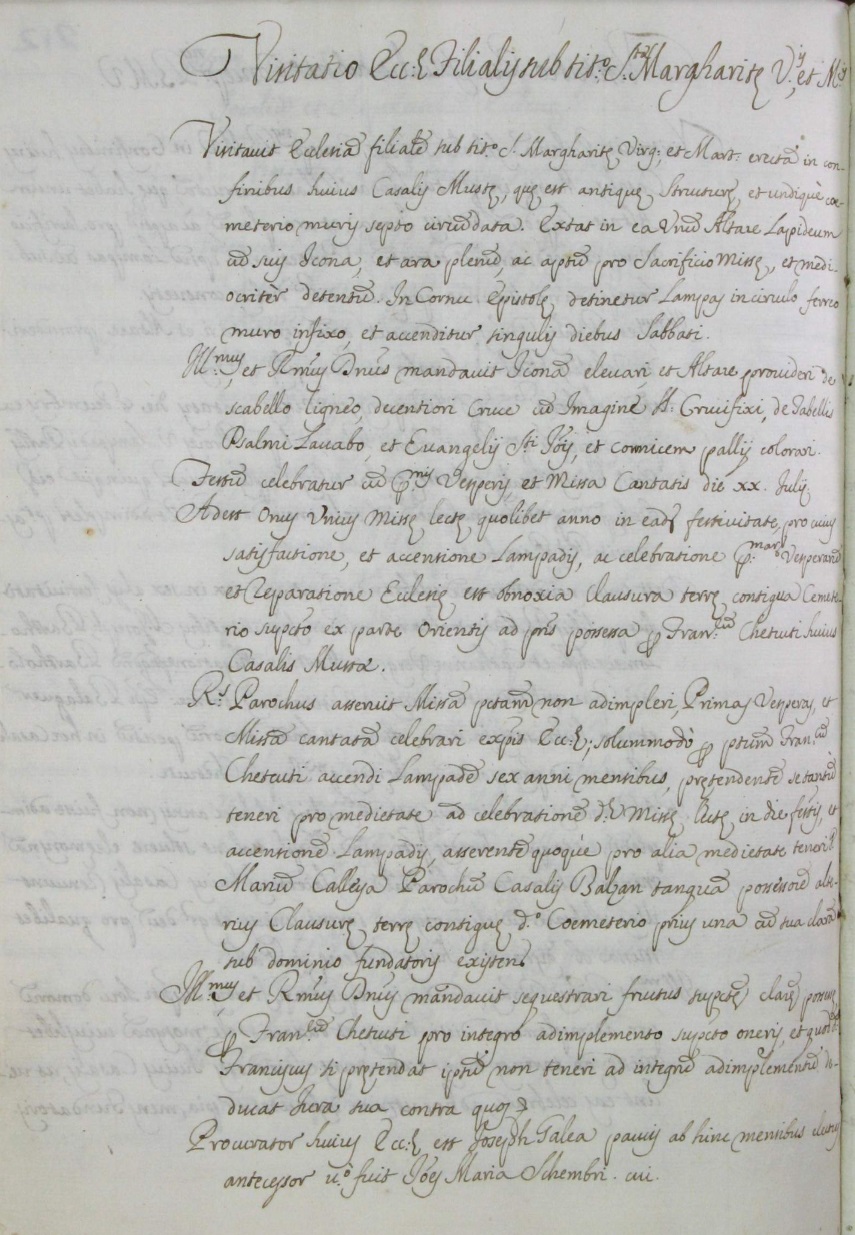 Visitatio Ecc:æ Filialis sub tit.º S.tæ Margharitę V.is, et M.is
Visitavit Ecclesiã filialẽ sub tit.º S. Margharitę Virg: et Mart: erectã in con-
finibus huius Casalis Mustę, quę est antiquę structurę, et undiquè coe-
meterio muris septo circũdata. Extat in ea Unũ Altare Lapideum
cũ suis Icona, et ara plenũ, ac aptũ pro Sacrificio Missę, et medi-
ocritèr detentũ. In Cornu Epistolę detinetur Lampas in circulo ferreo
muro infixo, et accenditur singulis diebus Sabbati.
Ill.mus, et Rm̃us Dñus mandavit Iconã elevari, et Altare provideri de
scabello ligneo, decentiori Cruce cũ Imaginẽ SS. Crucifixi, de Tabellis
Psalmi Lavabo, et Evangelij S.ti Jõis, et cornicem pallij colorari.
Festũ celebratur cũ p.mis Vesperis, et Missa Cantatis die xx. Julij.
Adest Onus Unius Missę lectę quolibet anno in eadẽ festivitate, pro cuius
satisfactione, et accensione Lampadis, ac celebratione p.marũ Vesperarũ
et reparatione Ecclesię est obnoxia clausura terrę contigua Cemete-
rio supcto ex parte Orientis ad pñs possessa p Fran.cum Chetcuti huius
Casalis Mustæ.
R.s Parochus asseruit Missã pctam non adimpleri, Primas Vesperas, et
Missã cantatã celebrari expñs Ecc:æ; solummodò p ptum Fran.cũ
Chetcuti accendi Lampadẽ sex anni mensibus, prętendentẽ se tantũ
teneri pro medietate ad celebrationẽ d.æ Missę lectę in die festi, et
accensionẽ Lampadis, asserentẽ quoquè pro alia medietate teneri
Mariũ Calleya Parochũ Casalis Balzan tanquã possessorẽ alte-
rius Clausurę terrę contiguę d.º Coemeterio prius una cũ sua clarã
sub dominio fundatoris existens.
Ill.mus et Rm̃us Dñus mandavit sequestrari fructus supctę clarę possessę
p Fran.cum Chetcuti pro integro adimplemento supcto oneris, et quod
Franciscus si prętendat ipsũ non teneri ad integrũ adimplementũ de-
ducat Jura sua contra quos
Procurator huius Ecc:æ est Joseph Galea paucis ab hinc mensibus electus
antecessor v.º fuit Jões Maria Schembri. cui.